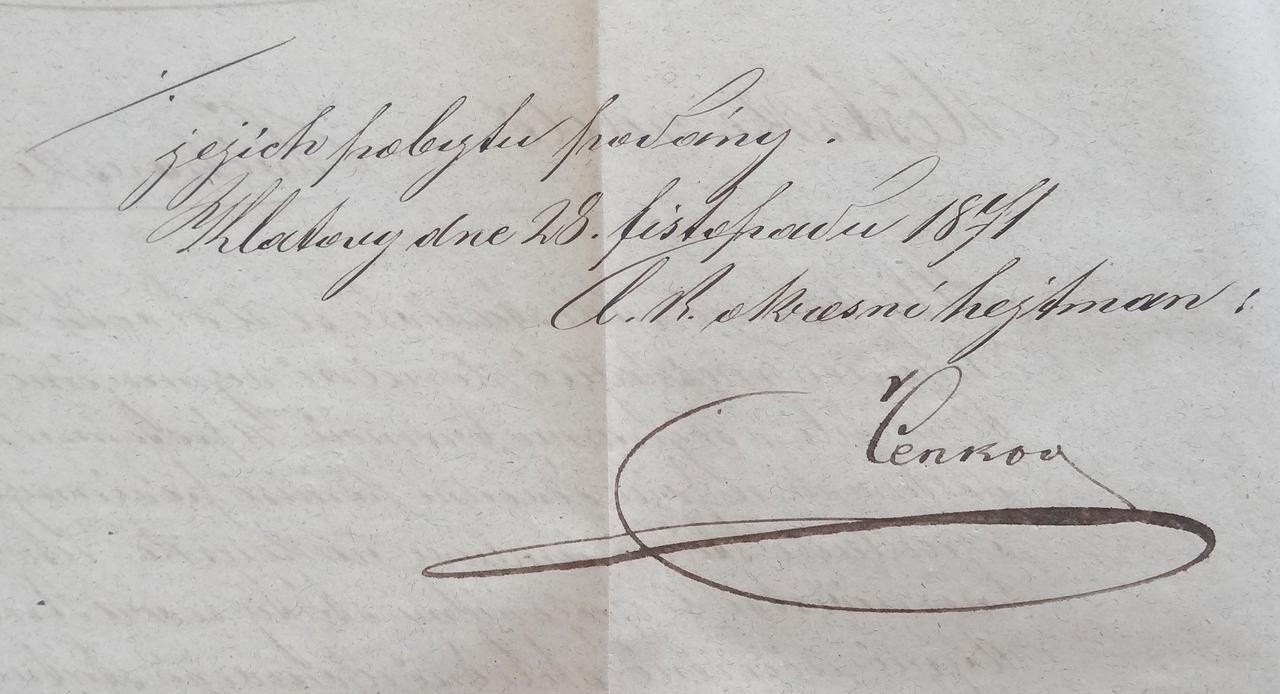 jejich pobytu podány.
Klatovy dne 28. listopadu 1871
C. K. okresní hejtman:
Čenkov